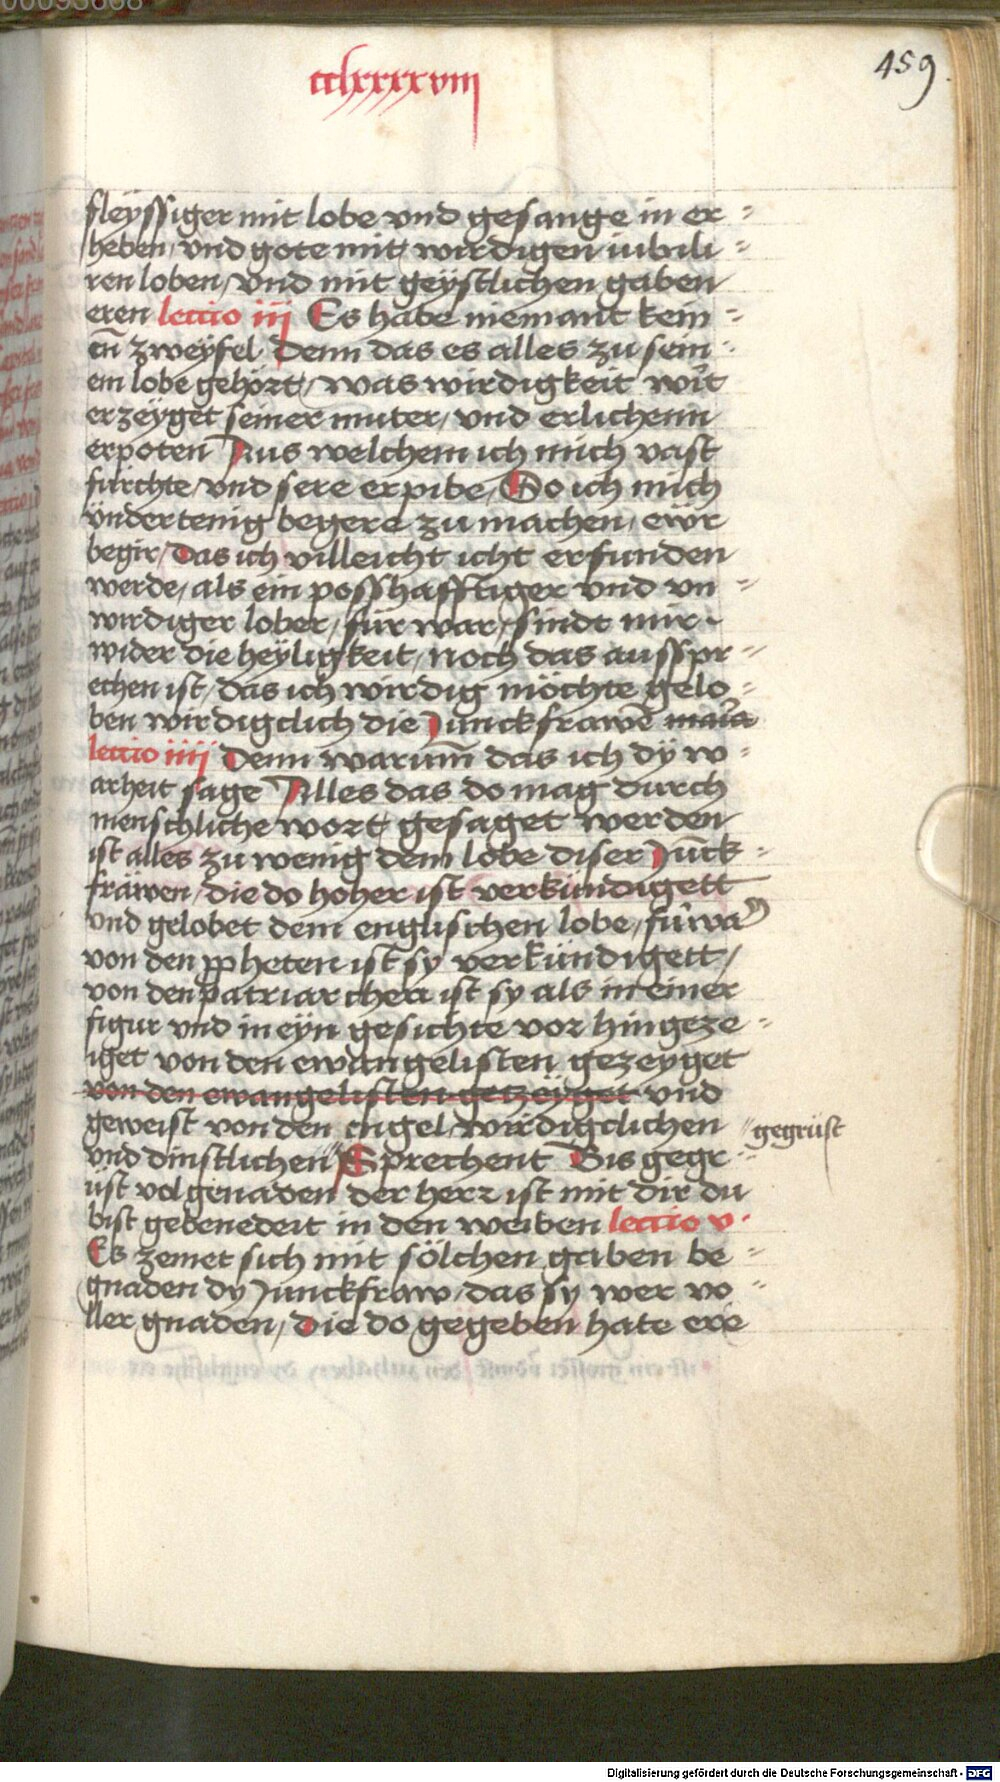 00093668
cclxxxxviii
459
fleyssiger mit lobe vnd gesange in er =
heben / vnd gote mit wirdigen iubili =
ren loben / vnd mit geystlichen gaben
eren lectio iij Es habe niemant kein =
en̄ zweyfel Denn das es alles zu sein =
em lobe gehort / was wirdigkeit wirt
erzeyget seiner muter / vnd erlichenn
erpoten Aus welchem ich mich vast
furchte / vnd sere erpibe / So ich mich
vndertenig begere zu machen / ewr
begir / Das ich villeicht icht erfunden
werde / als ein posshafftiger vnd vn =
wirdiger lober / fur war / sindt mir
wider die heyligkeit / noch das ausspr =
echen ist / das ich wirdig möchte gelo =
ben wirdigclich die Junckfrawē maria
lectio iiij Denn warumm das ich dy w =
arheit sage Alles das do mag durch
menschliche wort gesaget werden
ist alles zu wenig dem lobe diser Junck =
frawen / die do hoher ist verkundigett
vnd gelobet dem englischen lobe / furwar
von den ppheten ist sy verkündigett /
von den patriarchen ist sy als in einer
figur vnd in eyn gesichte vor hin geze =
iget von den ewangelisten gezeyget
von den ewangelisten getzeyget vnd
geweist von den engel / wirdigclichen
"gegrüst
vnd dinstlichen" Sprechent Bis gegr =
üst vol genaden der herr ist mit dir du
bist gebenedeit in den weiben lectio v.
Es zemet sich mit sölchen gaben be =
gnaden dy Junckfraw / das sy wer vo =
ller gnaden / die do gegeben hate ere
Digitalisierung gefördert durch die Deutsche Forschungsgemeinschaft - DFG